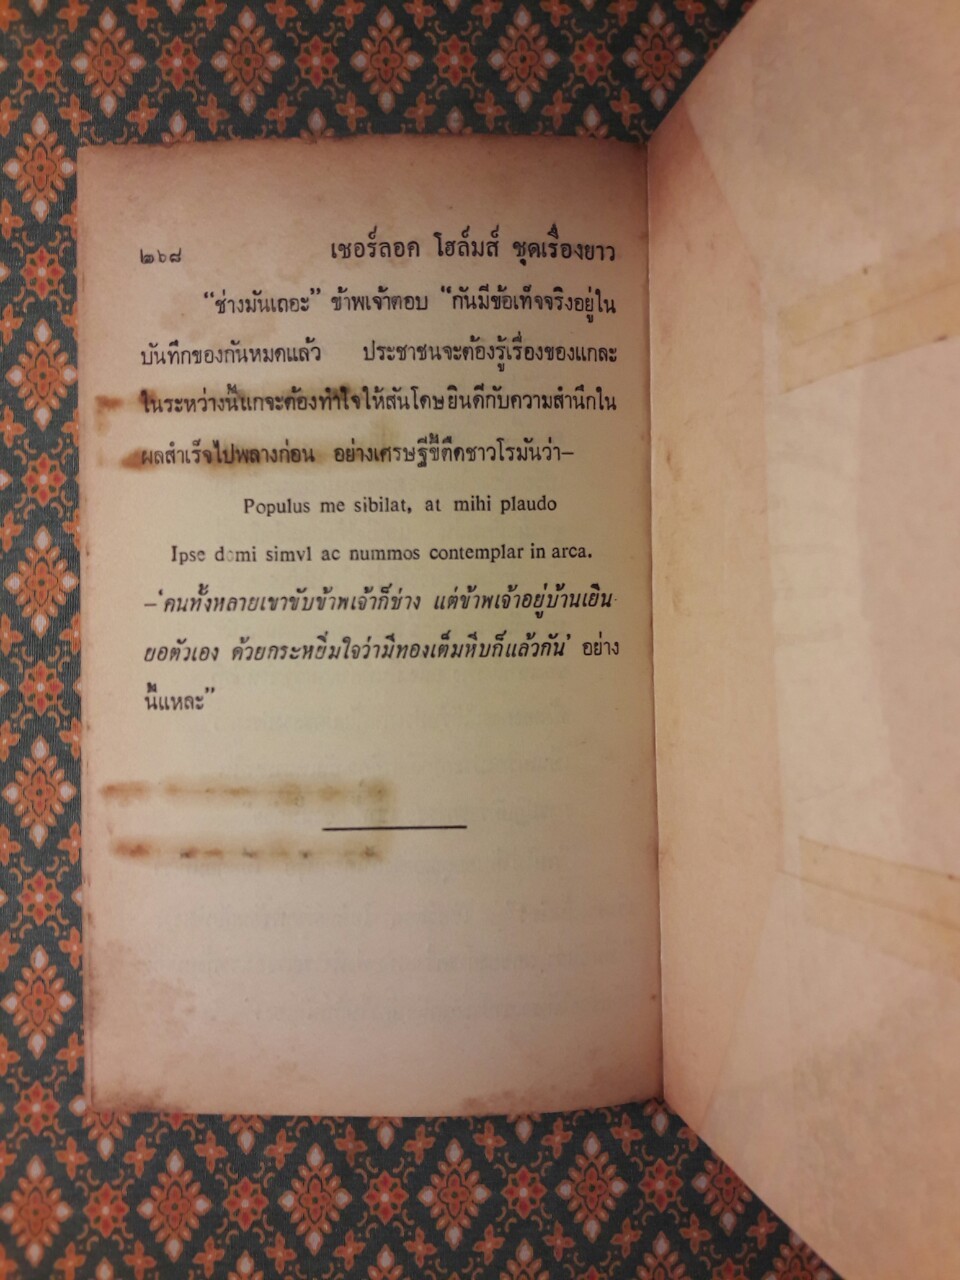 ๒๖๘ เชอร์ลอค โฮล์มส์ ชุดเรื่องยาว
“ช่างมันเถอะ” ข้าพเจ้าตอบ “กันมีข้อเท็จจริงอยู่ใน
บันทึกของกันหมดแล้ว ประชาชนจะต้องรู้เรื่องของแกละ
ในระหว่างนี้แกจะต้องทำใจให้สันโดษยินดีกับความสำนึกใน
ผลสำเร็จไปพลางก่อน อย่างเศรษฐีขี้ตืดชาวโรมันว่า–
Populus me sibilat, at mihi plaudo
Ipse domi simvl ac nummos contemplar in arca.
–‘คนทั้งหลายเขาขับข้าพเจ้าก็ช่าง แต่ข้าพเจ้าอยู่บ้านเยิน
ยอตัวเอง ด้วยกระหยิ่มใจว่ามีทองเต็มหีบก็แล้วกัน’ อย่าง
นี้แหละ”